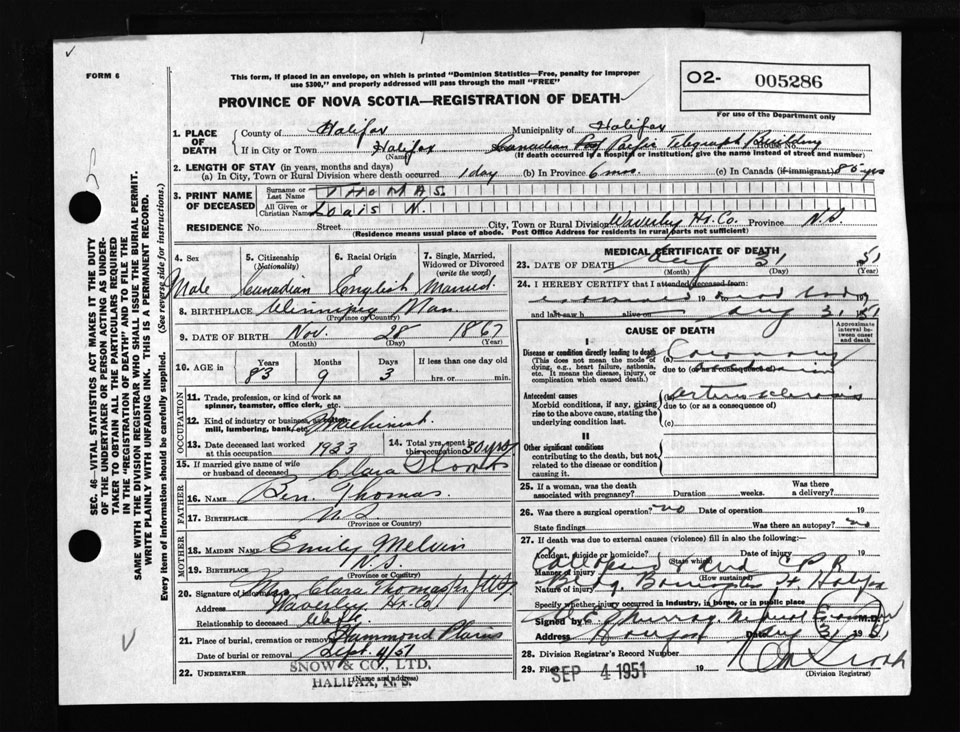 FORM 6
This form, if placed in an envelope, on which is printed "Dominion Statistics—Free, penalty for improper
use $300," and properly addressed will pass through the mail "FREE"
O2- 005286
For use of the Department only
PROVINCE OF NOVA SCOTIA—REGISTRATION OF DEATH
SEC. 46—VITAL STATISTICS ACT MAKES IT THE DUTY
OF THE UNDERTAKER OR PERSON ACTING AS UNDER-
TAKER TO OBTAIN ALL THE PARTICULARS REQUIRED
IN THE "REGISTRATION OF DEATH" AND TO FILE THE
SAME WITH THE DIVISION REGISTRAR WHO SHALL ISSUE THE BURIAL PERMIT.
WRITE PLAINLY WITH UNFADING INK. THIS IS A PERMANENT RECORD.
Every item of information should be carefully supplied. (See reverse side for instructions.)
1. PLACE OF DEATH
County of Halifax Municipality of Halifax
If in City or Town Halifax Canadian Pacific Telegraph Building House No.
(Name) (If death occurred in a hospital or institution, give the name instead of street and number)
2. LENGTH OF STAY (in years, months and days)
(a) In City, Town or Rural Division where death occurred 1 day (b) In Province 6 mos (c) In Canada (if immigrant) 80 yrs
3. PRINT NAME OF DECEASED
Surname or Last Name THOMAS.
All Given or Christian Names Louis N.
RESIDENCE No. Street City, Town or Rural Division Waverley Hx. Co. Province N.S.
(Residence means usual place of abode. Post Office Address for residents in rural parts not sufficient)
4. Sex
Male
5. Citizenship (Nationality)
Canadian
6. Racial Origin
English
7. Single, Married, Widowed or Divorced (write the word)
Married.
8. BIRTHPLACE Winnipeg Man.
(Province or Country)
9. DATE OF BIRTH Nov. 28 1867
(Month) (Day) (Year)
10. AGE in Years Months Days If less than one day old
83 9 3 hrs. or min.
OCCUPATION
11. Trade, profession, or kind of work as
spinner, teamster, office clerk, etc.
12. Kind of industry or business, as
mill, lumbering, bank, etc. Machinist.
13. Date deceased last worked
at this occupation 1933
14. Total yrs. spent in
this occupation 50 yrs
15. If married give name of wife
or husband of deceased Clara Thomas
FATHER
16. NAME Ben. Thomas.
17. BIRTHPLACE N.S.
(Province or Country)
MOTHER
18. MAIDEN NAME Emily Melvin
19. BIRTHPLACE N.S.
(Province or Country)
20. Signature of informant Mrs. Clara Thomas
Address Waverley Hx. Co.
Relationship to deceased
21. Place of burial, cremation or removal Hammond Plains
Date of burial or removal Sept. 4/51
22. UNDERTAKER SNOW & CO., LTD.
HALIFAX, N. S.
(Name and address)
MEDICAL CERTIFICATE OF DEATH
23. DATE OF DEATH Aug 31 1951
(Month) (Day) (Year)
24. I HEREBY CERTIFY that I attended deceased from:
examined 19 dead body 19
and last saw h alive on Aug 31, 51
CAUSE OF DEATH
Approximate interval between onset and death
I
Disease or condition directly leading to death.
(This does not mean the mode of
dying, e.g., heart failure, asthenia,
etc. It means the disease, injury, or
complication which caused death.)
(a) Coronary
due to (or as a consequence of)
Antecedent causes
Morbid conditions, if any, giving
rise to the above cause, stating the
underlying condition last.
(b) Arteriosclerosis
due to (or as a consequence of)
(c)
II
Other significant conditions
contributing to the death, but not
related to the disease or condition
causing it.
25. If a woman, was the death
associated with pregnancy? Duration weeks. Was there a delivery?
26. Was there a surgical operation? no Date of operation 19
State findings Was there an autopsy? no
27. If death was due to external causes (violence) fill in also the following:—
Accident, suicide or homicide? (State which) Date of injury 19
Manner of injury Collapsed and C.P.R.
(How sustained)
Nature of injury Bldg. Barrington St Halifax
Specify whether injury occurred in industry, in home, or in public place
Signed by E. Murray, Medical Examiner M.D.
Address Aug 31 1951
28. Division Registrar's Record Number
29. Filed SEP 4 1951 19
(Division Registrar)